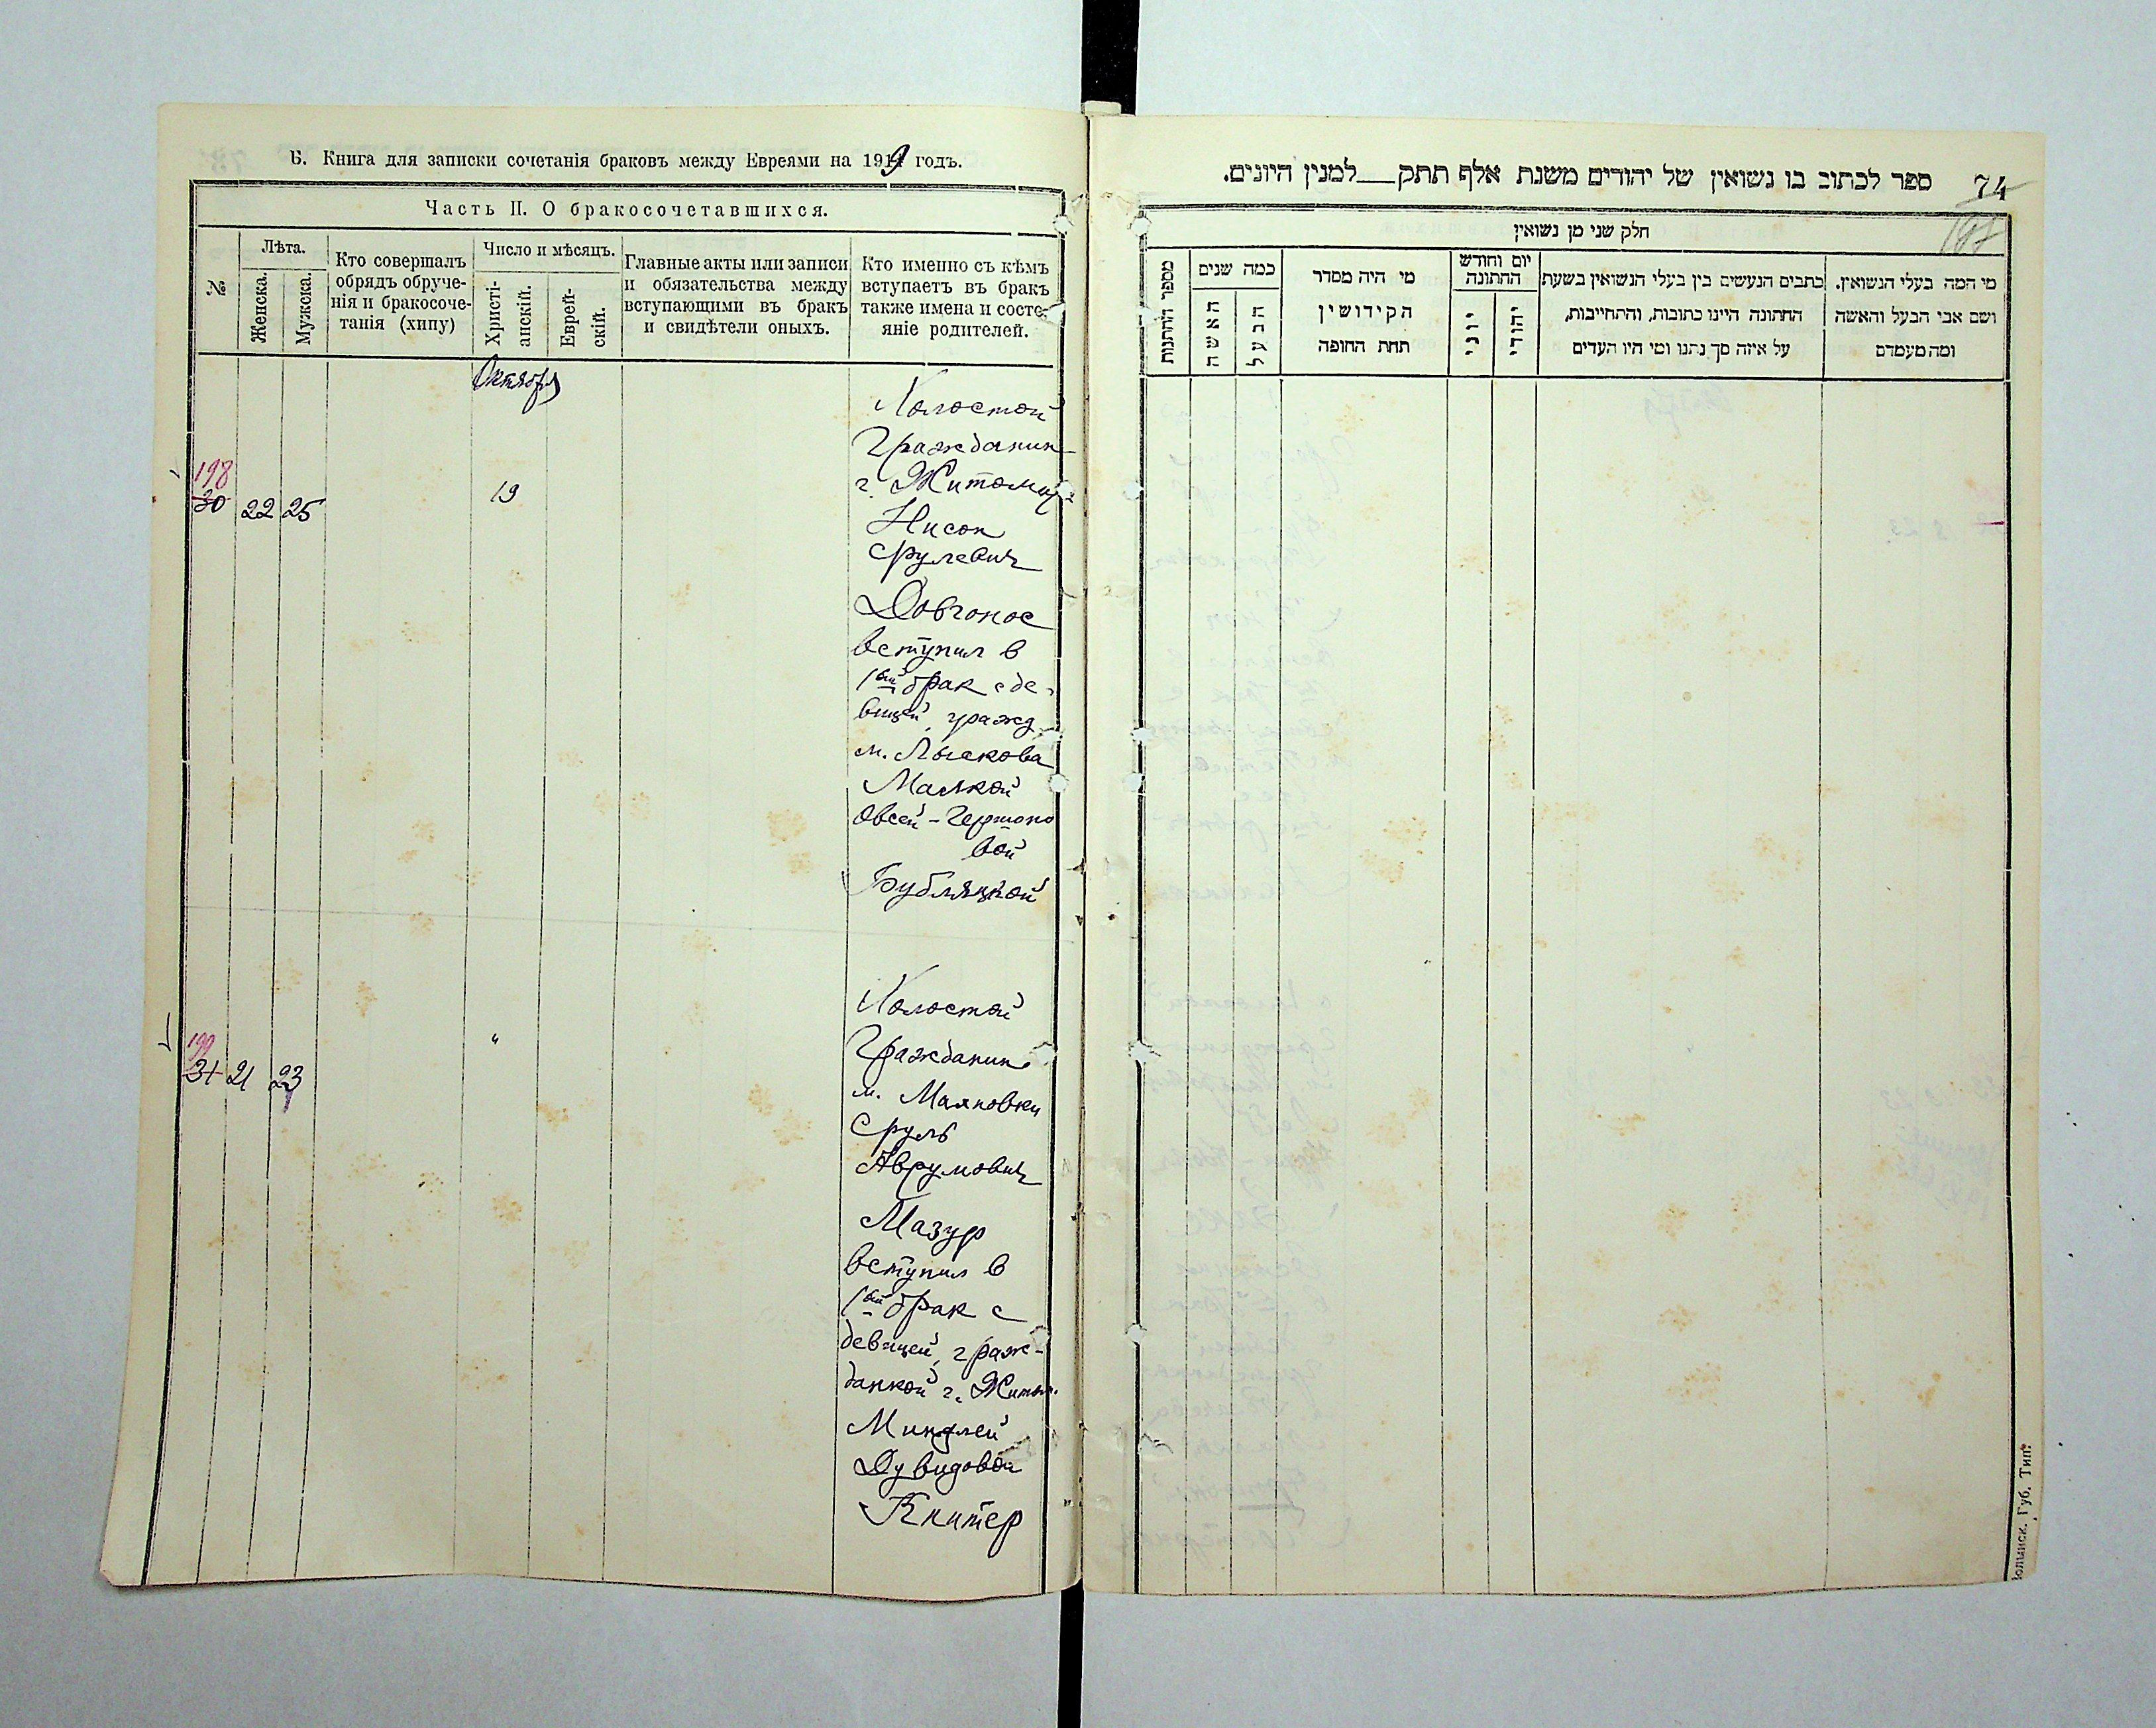 Б. Книга для записки сочетанія браковъ между Евреями на 1919 годъ.
Часть II. О бракосочетавшихся.
№
Лѣта.
Женска.
Мужска.
Кто совершалъ
обрядъ обруче-
нія и бракосоче-
танія (хипу)
Число и мѣсяцъ.
Христі-
анскій.
Еврей-
скій.
Главные акты или записи
и обязательства между
вступающими въ бракъ
и свидѣтели оныхъ.
Кто именно съ кѣмъ
вступаетъ въ бракъ
также имена и состо-
яніе родителей.
Октября
198
30
22
25
19
Холостой
Гражданин
г. Житомир
Нисон
Срулевич
Довгонос
вступил в
1ый брак с де-
вицей, гражд.
м. Лыскова
Малкой
Овсей-Гершоно
вой
Бубляцкой
199
31
21
23
"
Холостой
Гражданин
м. Маяновки
Сруль
Аврумович
Мазур
вступил в
1ый брак с
девицей, граж-
данкой г. Житом.
Миндлей
Дувидовой
Книтер
ספר לכתוב בו נשואין של יהודים משנת אלף תתק__למנין היונים.
74
197
חלק שני מן נשואין
מספר החתנות
כמה שנים
האשה
הבעל
מי היה מסדר
הקידושין
תחת החופה
יום וחודש
החתונה
יוני
יהודי
כתבים הנעשים בין בעלי הנשואין בשעת
החתונה היינו כתובות, והתחייבות,
על איזה סך נתנו ומי היו העדים
מי המה בעלי הנשואין.
ושם אבי הבעל והאשה
ומה מעמדם
Волынск. Губ. Тип.